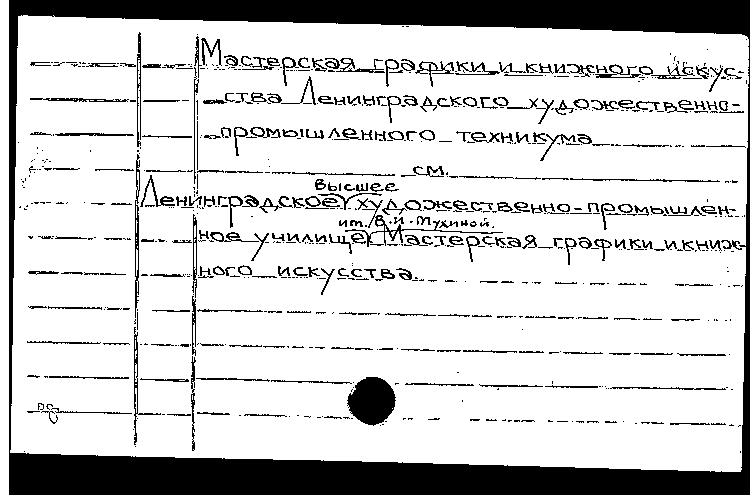 Мастерская графики и книжного искус-
ства Ленинградского художественно-
промышленного техникума
см.
высшее
Ленинградское художественно-промышлен-
им. В.И. Мухиной.
ное училище. Мастерская графики и книж-
ного искусства.